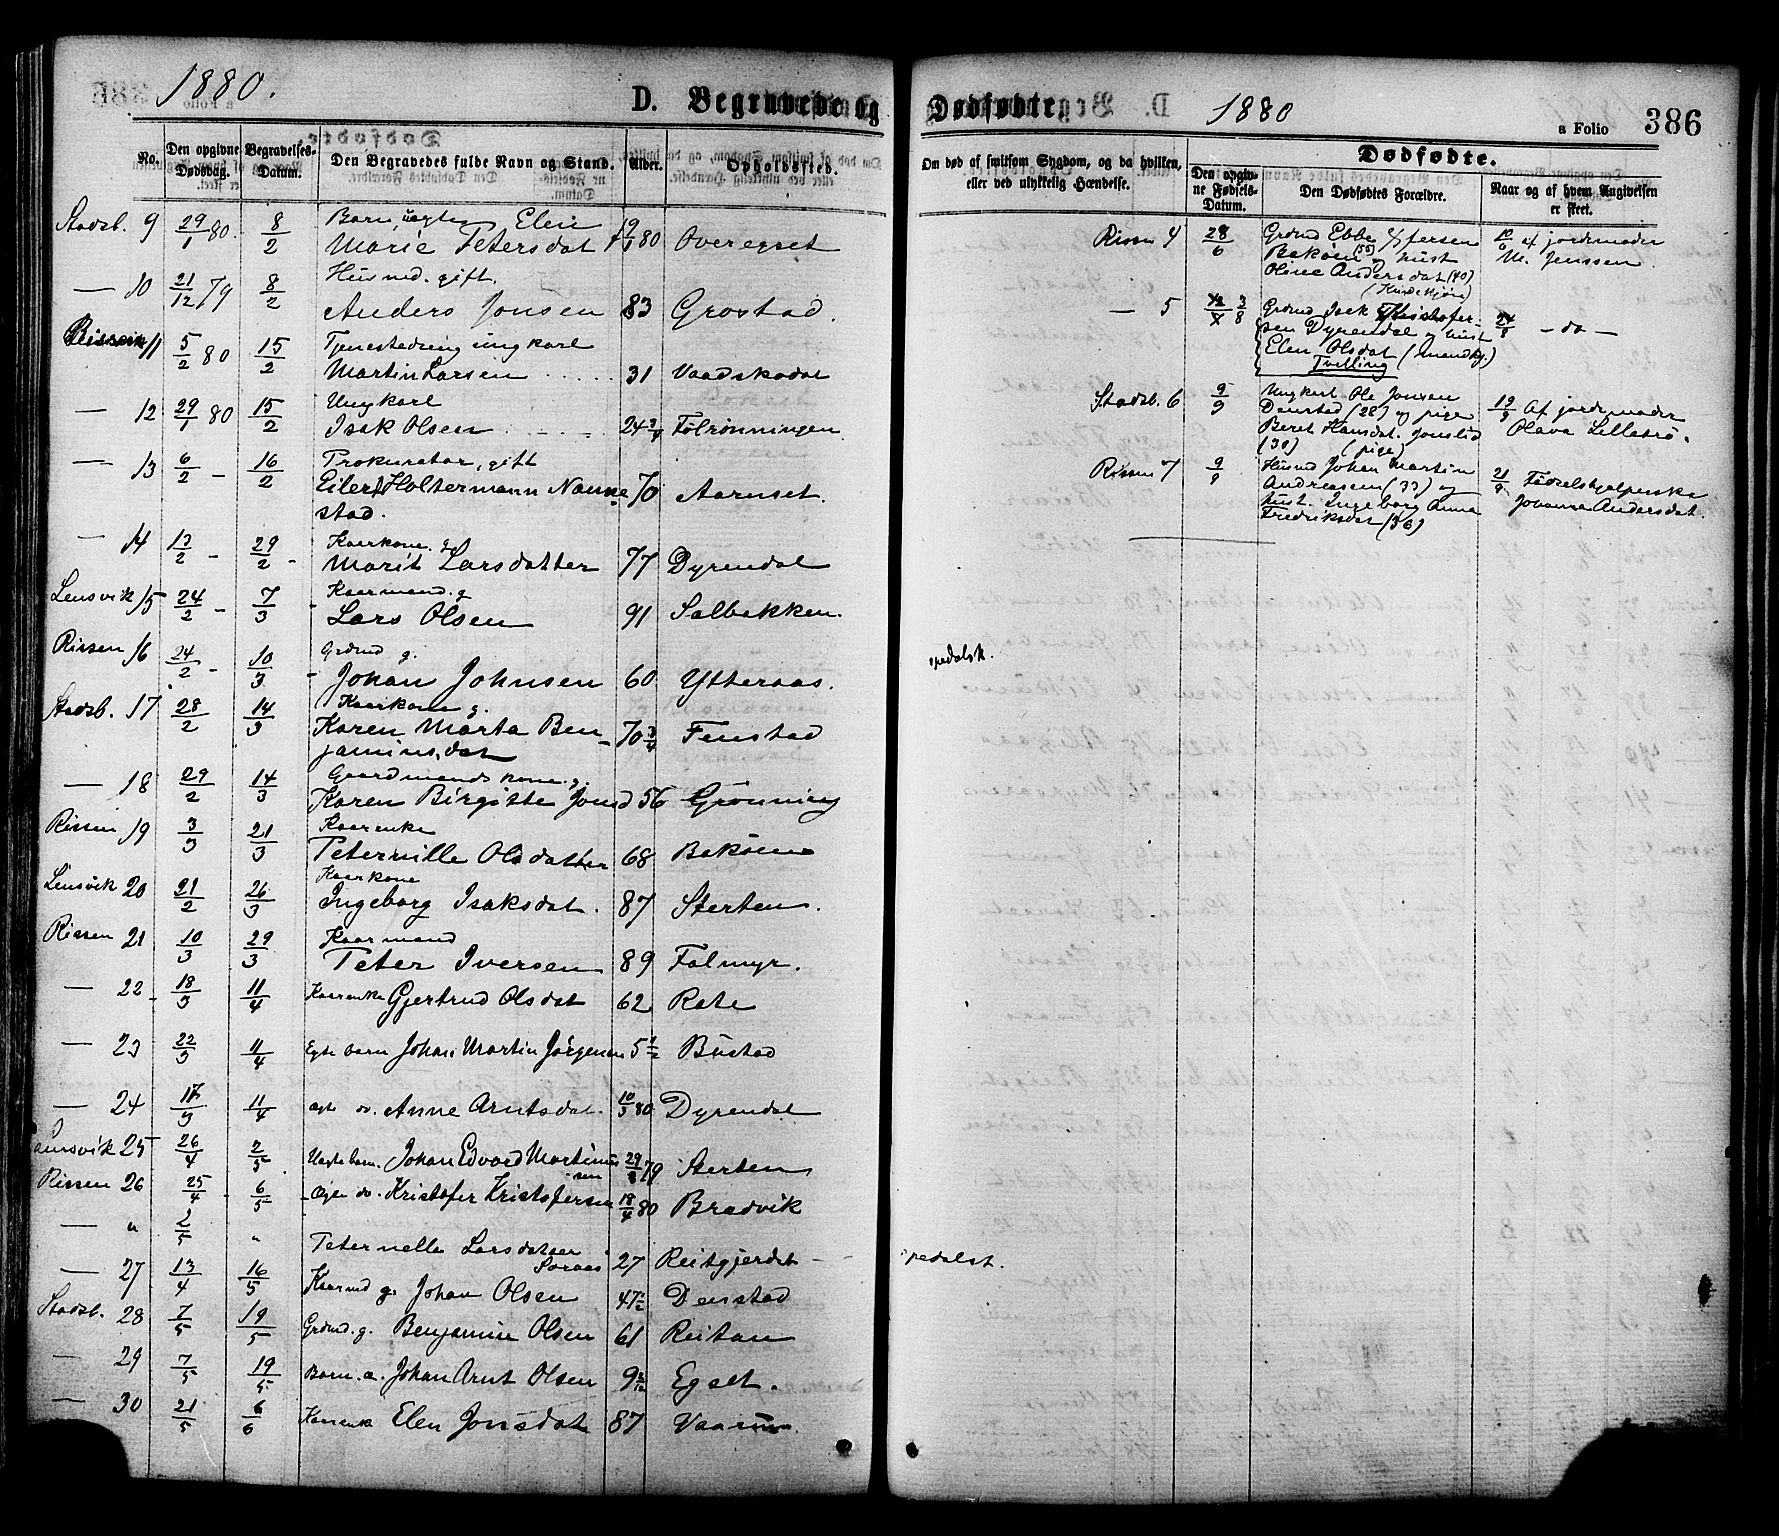 1880.
D. Begravede og
No.
Den opgivne Dødsdag.
Begravelses-Datum.
Den Begravedes fulde Navn og Stand.
Alder.
Opholdssted.
Stadsb. 9 29/1 80. 8/2 Barn, uægte Elen
Marie Petersdat 19/1 80 Overegset
— 10 21/12 79 8/2 Husmd. gift.
Anders Jonsen 83 Grostad.
11 5/2 80 15/2 Tjenestedreng ungkarl
Martin Larsen 31 Vaadskodat
— 12 29/1 80 15/2 Ungkarl
Isak Olsen 24 3/4 Følrønningen
— 13 6/2 - 16/2 Prokurator, gift
Eilert Holtermann Nanne- 70 Aarnset.
stad.
— 14 13/2 - 29/2 - Kaarkone. g
Marit Larsdatter 77 Dyrendal
Lensvik 15 24/2 - 7/3 - Kaarmand. g
Lars Olsen 91 Selbekken.
Rissen 16 24/2 - 10/3 - Grdmd g.
Johan Johnsen 60 Ytteraas.
Stadsb. 17 28/2 14/3 Kaarkone g.
Karen Marta Ben- 70 3/4 Fenstad
jaminsdat
— 18 29/2 14/3 Gaardmandskone. g.
Karen Birgitte Jonsd 56 Grønning
Rissen 19 3/3 21/3 Kaarenke
Peternille Olsdatter 68 Bakøen
Lensvik 20 21/2 26/3 Kaarkone
Ingeborg Isaksdat. 87 Sterten.
Rissen 21 10/3 29/3 Kaarmand
Peter Iversen 89 Falmyr.
— 22 18/3 11/4 Kaarenke Gjertrud Olsdat 62 Rate
— 23 22/3 11/4 Egte barn Johan Martin Jørgensen 5 1/2 Bustad
— 24 17/3 11/4 ægte do. Anne Arntsdat. 10/3 80 Dyrendal
Lensvik 25 26/4 2/5 Uægte barn. Johan Edvard Martinus 29/8 79 Sterten
sen
Rissen 26 25/4 - 6/5 - Ægte do. Kristofer Kristofersen 18/4 80 Bradvik
— " 2/5 " Peternelle Larsdatter
Soraas 27 Reitgjerdet —
— 27 13/4 16/5 Kaarmd g. Johan Olsen 47 1/2 Denstad
Stadsb. 28 7/5 19/5 Grdmd. g. Benjamin Olsen 61 Reitan
— 29 7/5 19/5 Barn. æ. Johan Arnt Olsen 9 Egset.
— 30 21/5 6/6 Kaarenke Elen Jonsdat 87
Dødfødte
1880
a Folio 386
Om død af smitsom Sygdom, og da hvilken,
eller ved ulykkelig Hændelse.
Dødfødte.
Den opgiv-
ne Fødsels-
Datum.
Den Dødfødtes Forældre.
Naar og af hvem Angivelsen
er skeet.
Rissen 4 28/6 Grdmd Ebbe
Bakøen (55) og hust
Oline Andersdat (40)
(Kvindekjøn)
af jordemoder
M. Jenssen.
— 5 3/8 Grdmd Isak Christofer-
sen Dyrendal og hust
Elen Olsdat (Mandkj.)
Tvilling
— do —
Stadsb. 6 9/9 Ungkarl Ole Jonsen
Denstad (28) og pige
Beret Hansdat. Jonslid
(30) (pige)
19/9 Af jordemoder
Olava Lilletrø.
Rissen 7 9/9 Husmd Johan Martin
Andreasen (33) og
hust. Ingeborg Anna
Fredriksdat (36)
21/9 Fødselshjælperske
Johanna Andersdat.
spedalsk.
spedalsk.